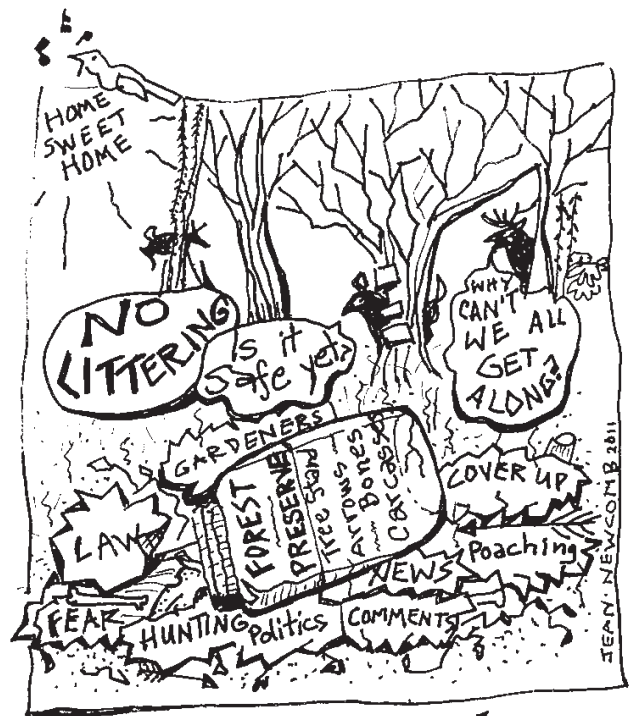 HOME
SWEET
HOME
NO
LITTERING
Is it
Safe yet?
WHY
CAN'T
WE ALL
GET
ALONG?
GARDENERS
FOREST
PRESERVE
Tree Stand
Arrows
Bones
Carcass
COVER UP
LAW
Poaching
NEWS
FEAR
HUNTING
Politics
COMMENTS
JEAN NEWCOMB 2011